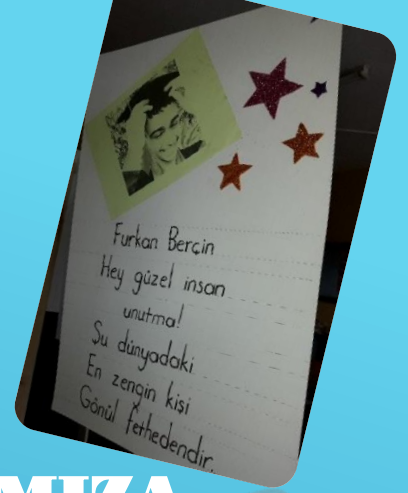 Furkan Berçin
Hey güzel insan
unutma!
Şu dünyadaki
En zengin kişi
Gönül fethedendir.
MIZA